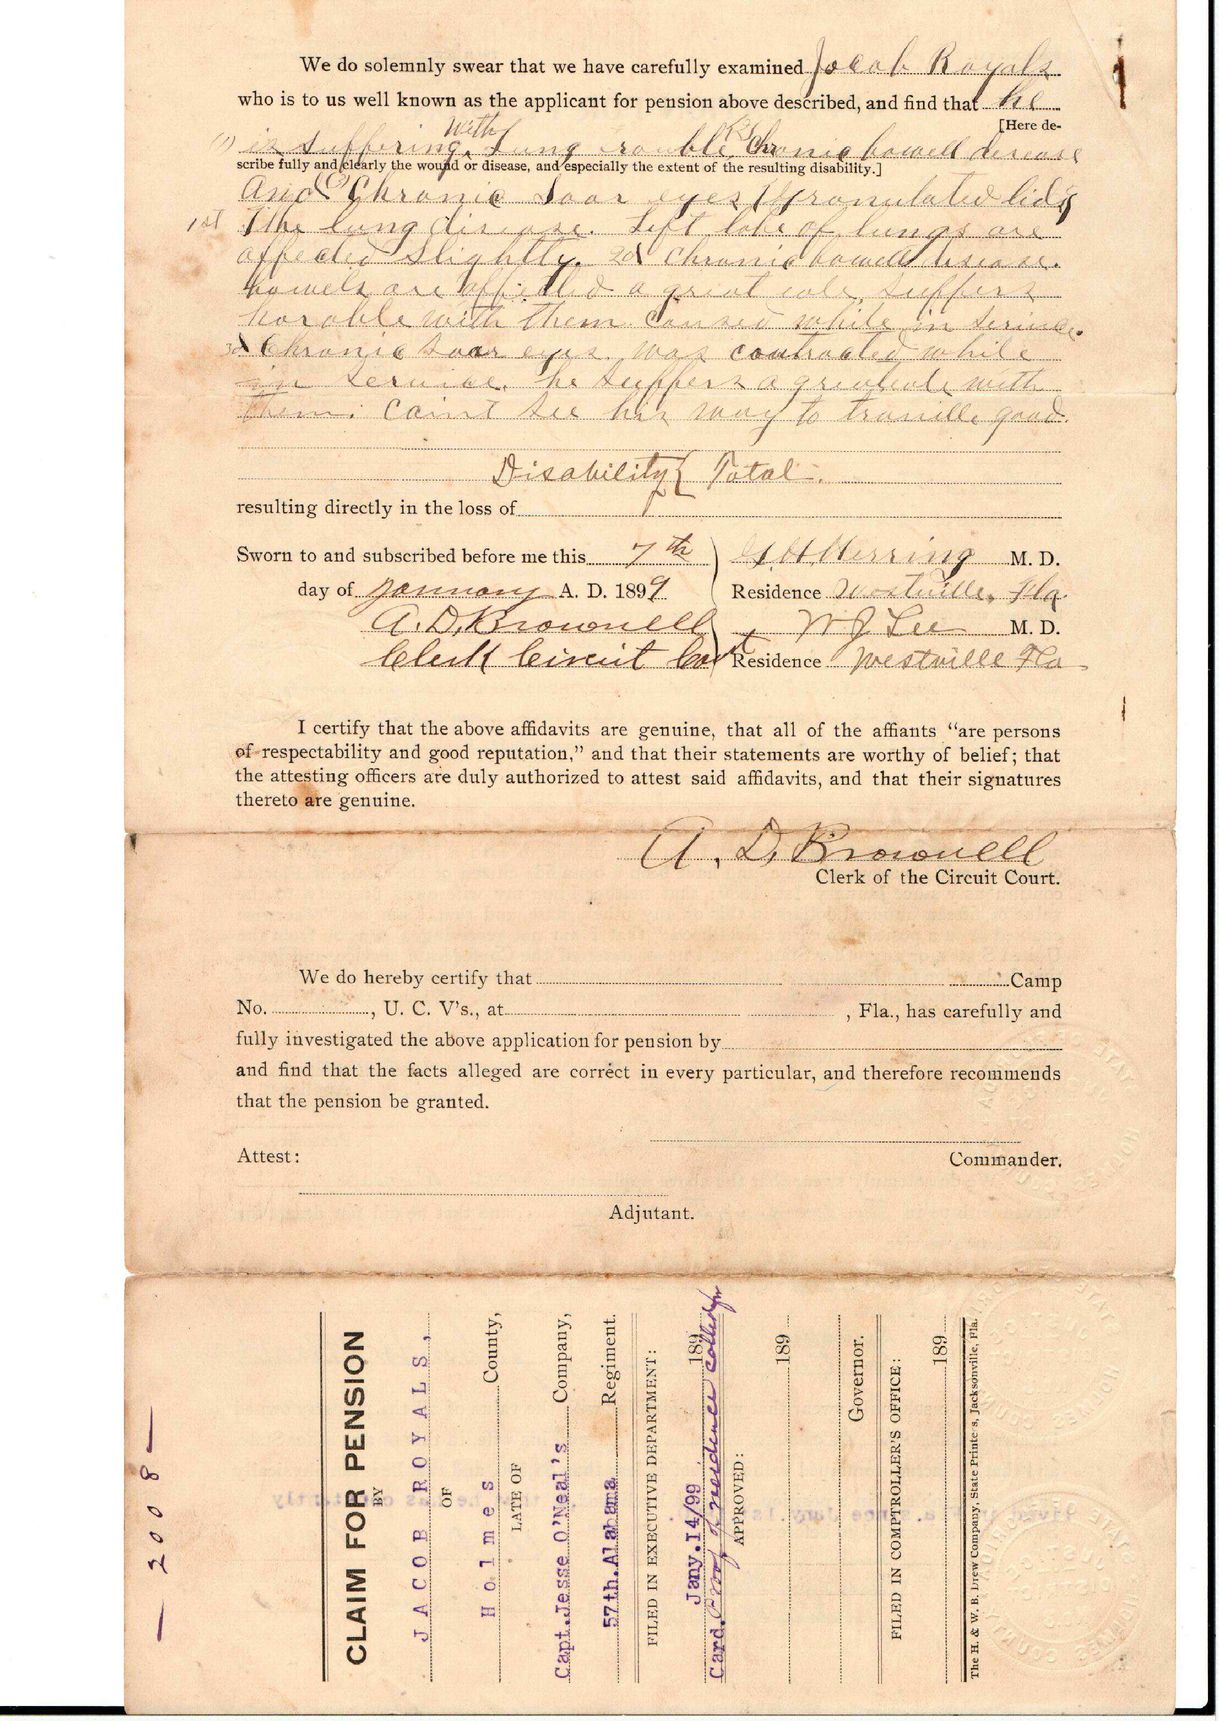 We do solemnly swear that we have carefully examined Jocob Royals
who is to us well known as the applicant for pension above described, and find that he
[Here de-
(1) is suffering with Lung rouble, Chronic bowell disease
scribe fully and clearly the wound or disease, and especially the extent of the resulting disability.]
And (3) Chronic Soar eyes (Granulated lids)
1st The lung disease. Left lobe of lungs are
affected Slightly. 2d Chronic bowell disease.
bowels are affected a great eole, suffers
horable with them caused while in Service.
3d Chronic Soar eyes was contracted while
in Service. he suffers a greateole with
them. Caint See his way to traville good.
Disability { Total.
resulting directly in the loss of
Sworn to and subscribed before me this 7th
day of January A. D. 1899
A. D. Brownell
Clerk Circuit Court
Herring M. D.
Residence Westville, Fla.
W J Lee M. D.
Residence Westville Fla
I certify that the above affidavits are genuine, that all of the affiants “are persons
of respectability and good reputation,” and that their statements are worthy of belief; that
the attesting officers are duly authorized to attest said affidavits, and that their signatures
thereto are genuine.
A. D. Brownell
Clerk of the Circuit Court.
We do hereby certify that Camp
No. , U. C. V's., at , Fla., has carefully and
fully investigated the above application for pension by
and find that the facts alleged are correct in every particular, and therefore recommends
that the pension be granted.
Attest:
Commander.
Adjutant.
— 2008 —
CLAIM FOR PENSION
BY
JACOB ROYALS,
OF
Holmes County,
LATE OF
Capt. Jesse O'Neal's Company,
57th. Alabama Regiment.
FILED IN EXECUTIVE DEPARTMENT:
Jany. 14/99 189
Card. Proof of residence called for
APPROVED:
189
Governor.
FILED IN COMPTROLLER'S OFFICE:
189
The H. & W. B. Drew Company, State Printers, Jacksonville, Fla.